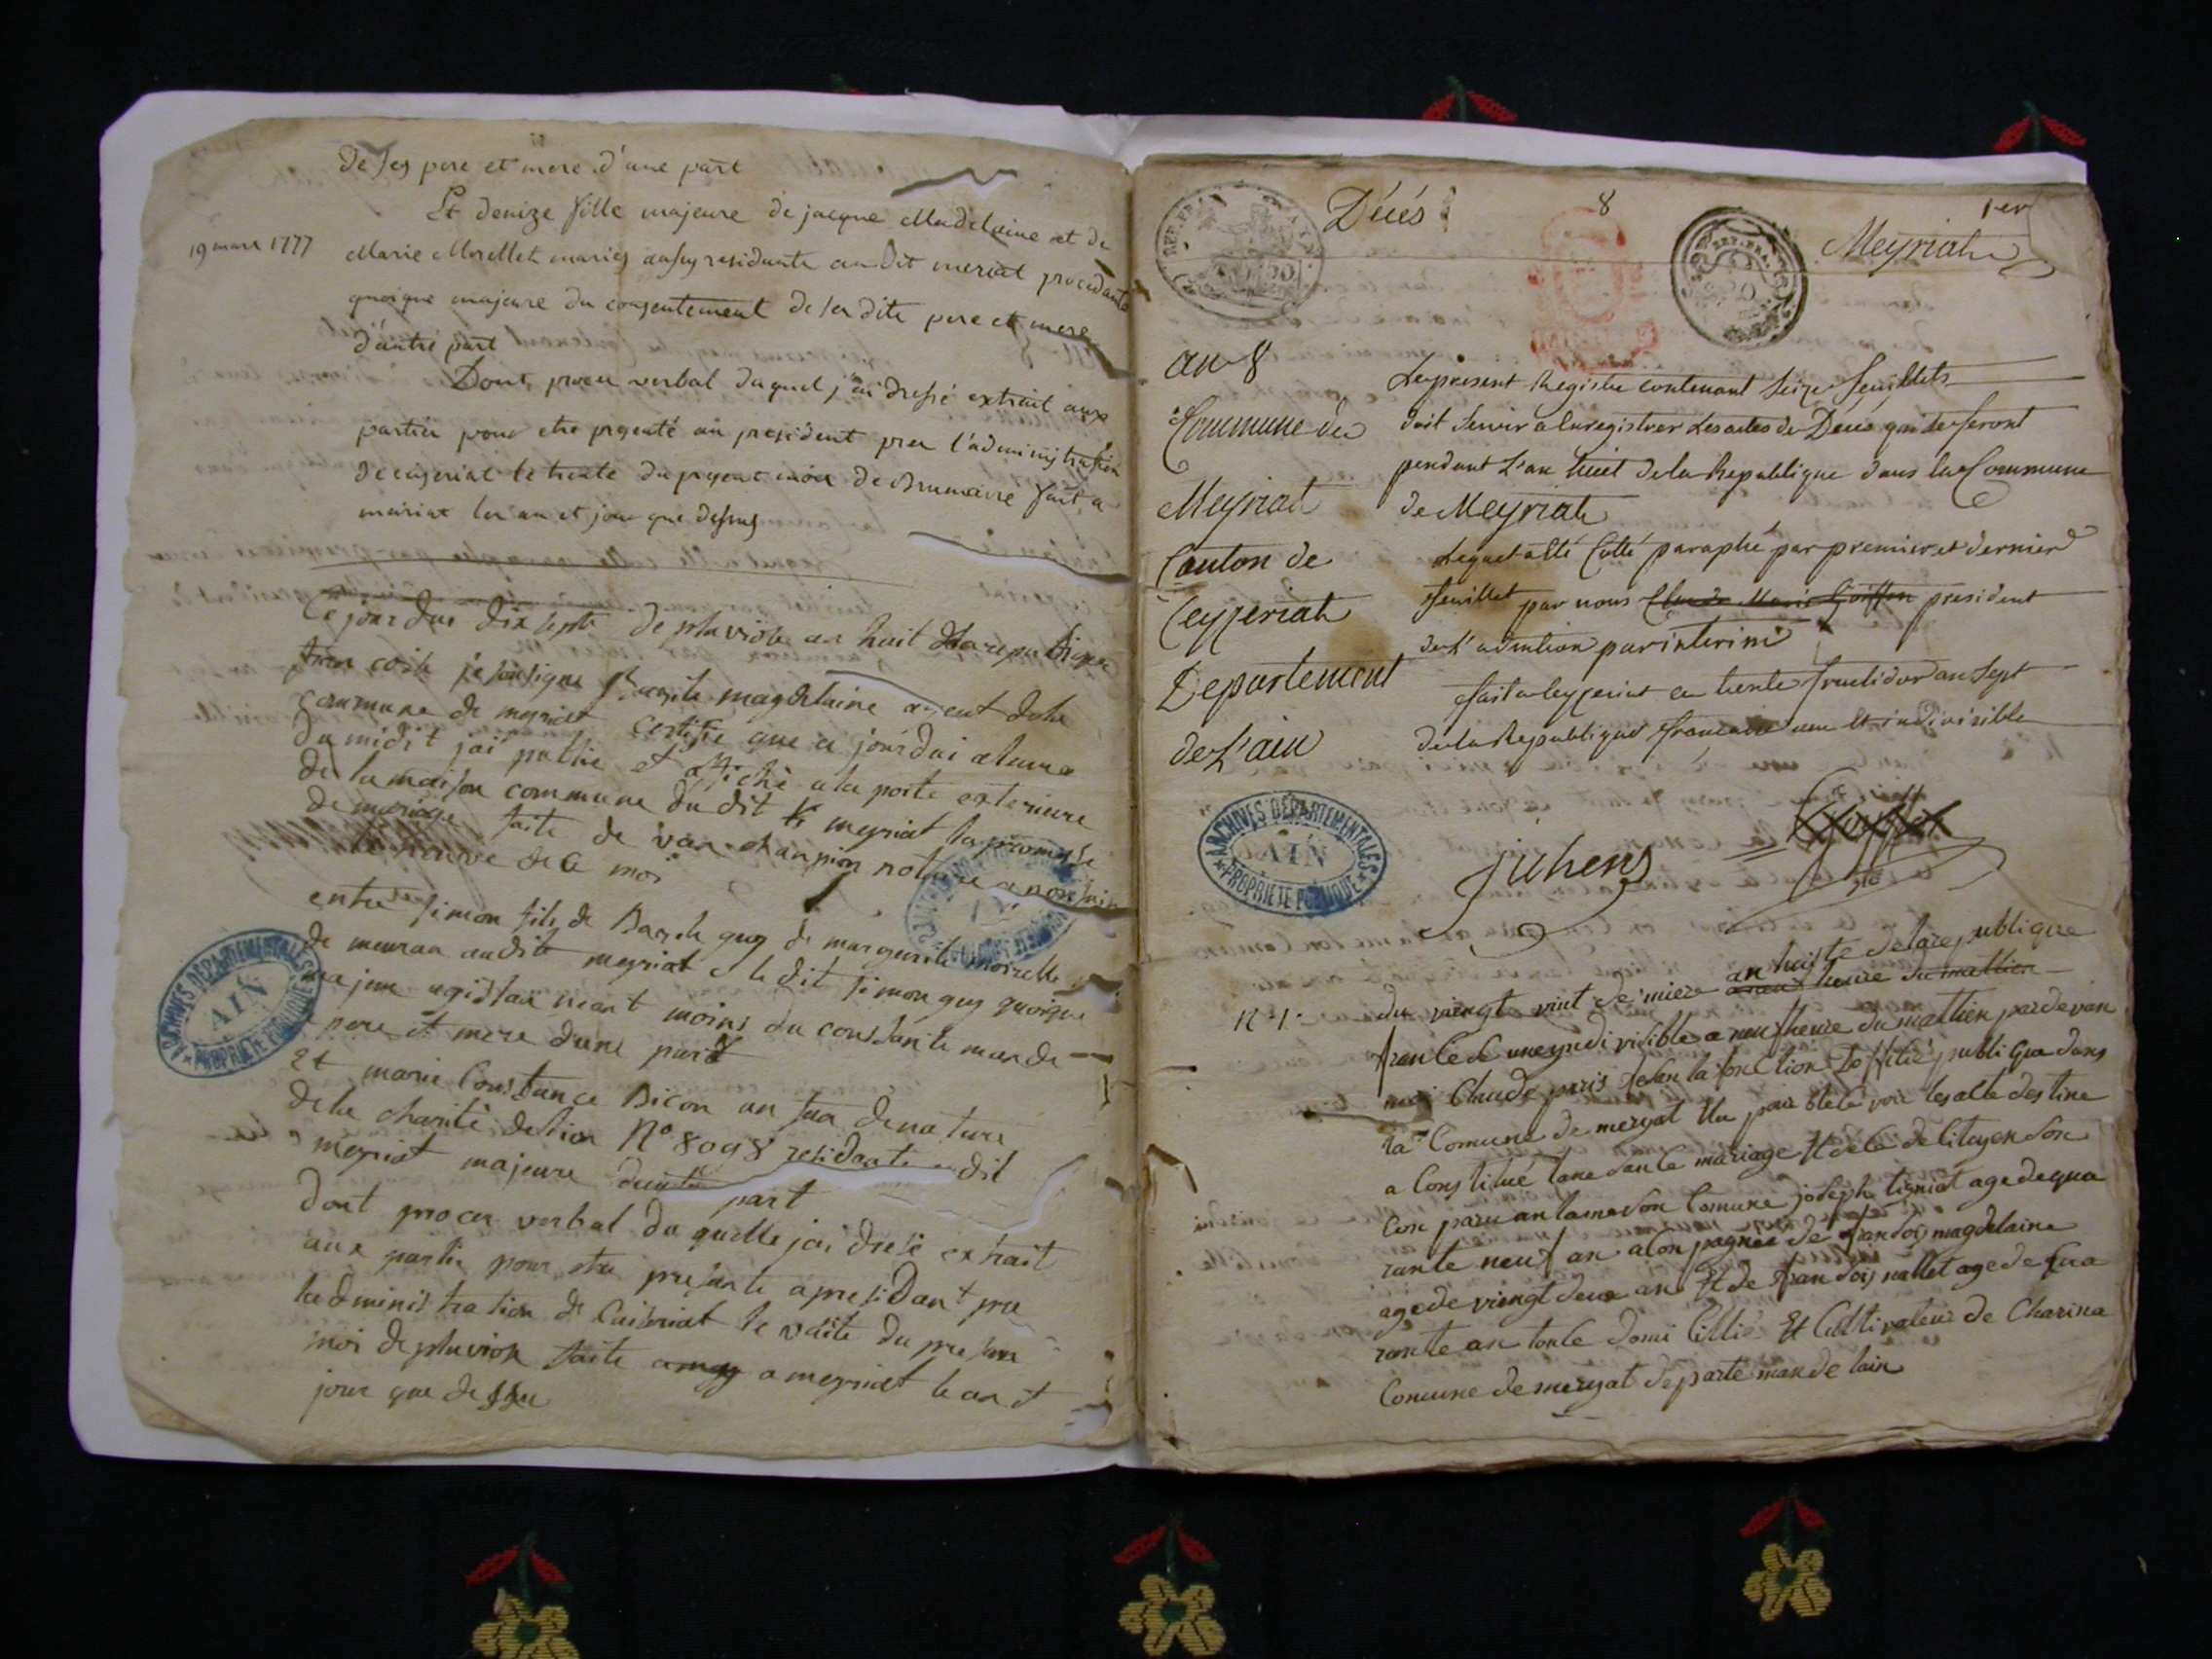 de ses pere et mere d'une part
Et denize fille majeure de jacque Madelaine et de
19 mars 1777
Marie Morellet maries aussy residante au dit meriat procedante
quoique majeure du consentement de ses dits pere et mere
d'autre part
Dont procu verbal duquel j'ai dressé extrait aux
partier pour etre presenté au president pres l'administration
de ceyseriat le trente du present mois de Brumaire fait a
meiriat les an et jour que dessus
Ce jourdui dix septe de pluviose an huit de la republique
je soussigne Basile magdelaine agent de la
commune de meyriat certifie que ce jourdui a leure
du midi j'ai publie et affiché a la porte exterieure
de la maison commune du dit meyriat la promesse
de mariage faite de van chanpion notaire
le neuve de ce moi
entre simon fils de Basile guy de marguerite moirelle
de meuran audit meyriat le dit simon guy quoique
majeur agistan neant moins du consantemande
pere et mere dune part
Et marie Constance Bicon an fan de nature
de la charité de lion N° 8098 residante au dit
meyriat majeure part
dont procer verbal du quelle jai dresé extrait
aux partie pour etre presante a presidant pre
ladministration de Caiseriat le vaite du presan
moi de pluviose faite a meyriat le an et
jour que dessu
ARCHIVES DÉPARTEMENTALES
AIN
PROPRIÉTÉ PUBLIQUE
Décés
8
1er
Meyriat
REP. FRA.
an 8
Commune de
Meyriat
Canton de
Ceyzeriat
Departement
de L'ain
Le present Registre contenant seize feuillets
doit servir a Enregistrer les actes de Décés qui se feront
pendant L'an huit de la Republique dans la Commune
de Meyriat
Lequel a été Cotté paraphé par premier et dernier
feuillet par nous Claude Marie Goiffon president
de L'adm[in]tion par interim
fait a Ceyzeriat ce trente fructidor an Sept
de la Republique francaise une et indivisible
ARCHIVES DÉPARTEMENTALES
AIN
PROPRIÉTÉ PUBLIQUE
N 1.
du viengt vint de miere an huiste de la republique
heure du mattien
franse de une yndi visible a neuf heure du mattien pardevan
moi Claude paris fesan la fonction publi que dans
la Comune de meryat
a Constitué lane dan le mariage
Con paru an la meson Comune joseph tigniat age de qua
rante neuf an a Conpagnee de fransois magdelaine
age de viengt deux an Et de fransois nallet age de Qua
rante an toule domi Cillié Et Cultivateur de Charina
Comune de meryat departe man de lain